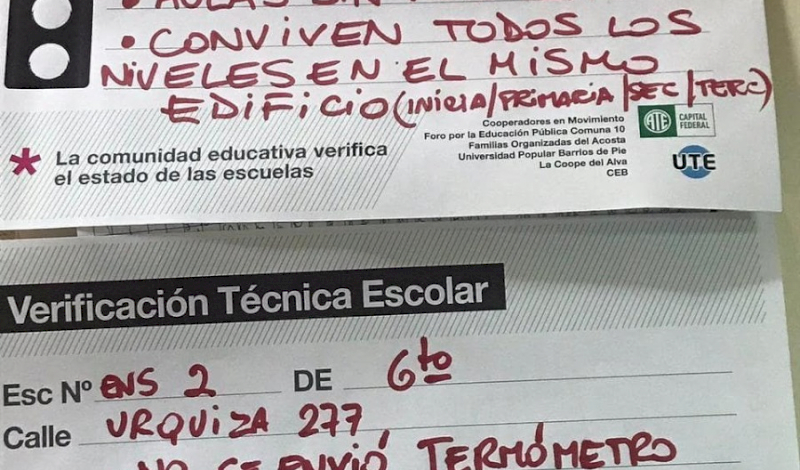 • CONVIVEN TODOS LOS
NIVELES EN EL MISMO
EDIFICIO (INICIA/PRIMARIA/SEC/TERC)
* La comunidad educativa verifica
el estado de las escuelas
Cooperadores en Movimiento
Foro por la Educación Pública Comuna 10
Familias Organizadas del Acosta
Universidad Popular Barrios de Pie
La Coope del Alva
CEB
ATE CAPITAL
FEDERAL
UTE
Verificación Técnica Escolar
Esc Nº ENS 2 DE 6to
Calle URQUIZA 277
NO SE ENVIÓ TERMÓMETRO